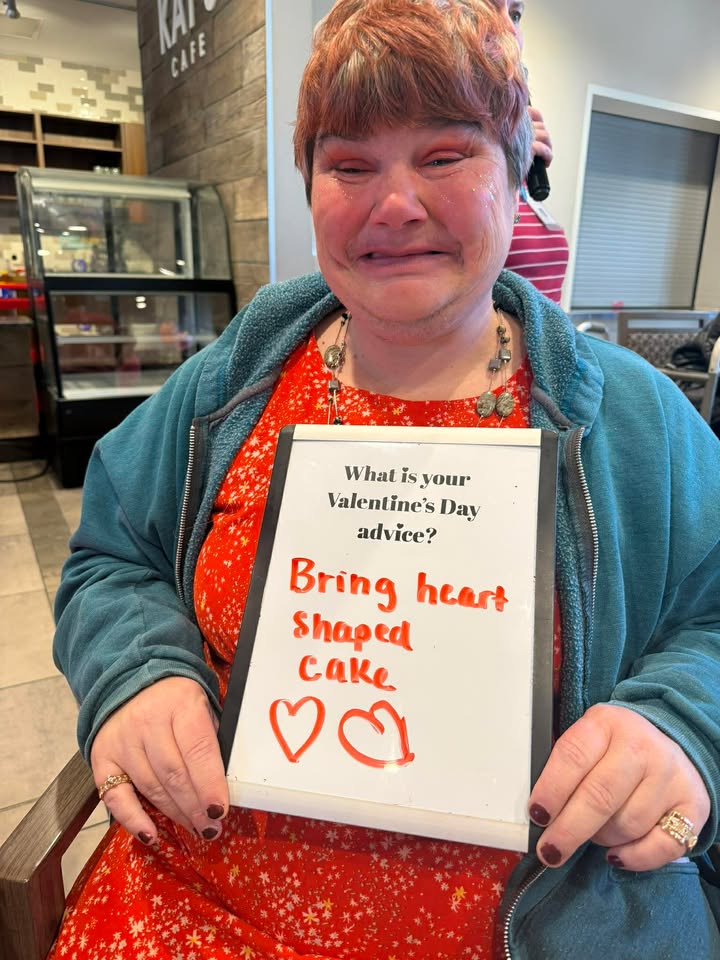 CAFE
What is your
Valentine's Day
advice?
Bring heart
shaped
cake